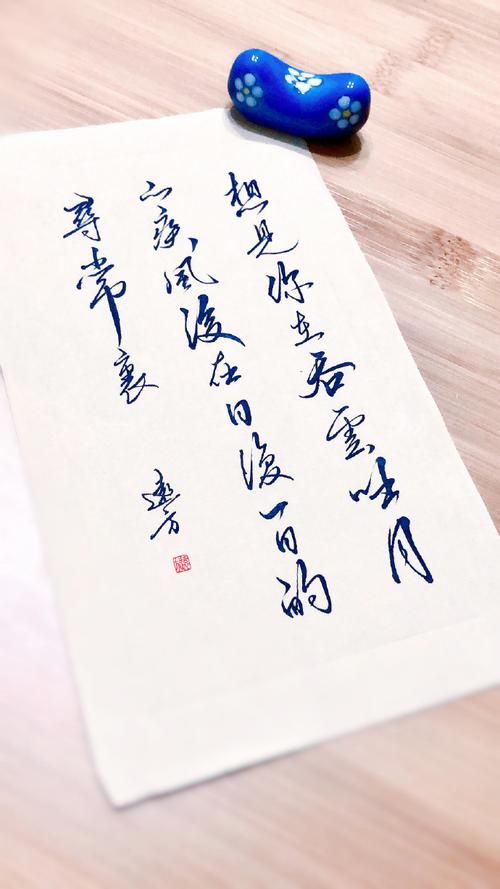 想見你在吞雲吐月
山風在日復一日的
尋常裏
遠方